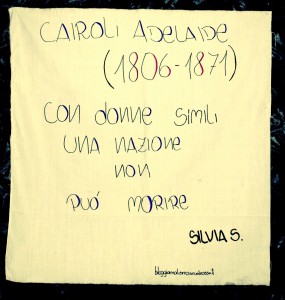 CAIROLI ADELAIDE
(1806-1871)
CON DONNE SIMILI
UNA NAZIONE
NON
PUÓ MORIRE
SILVIA S.